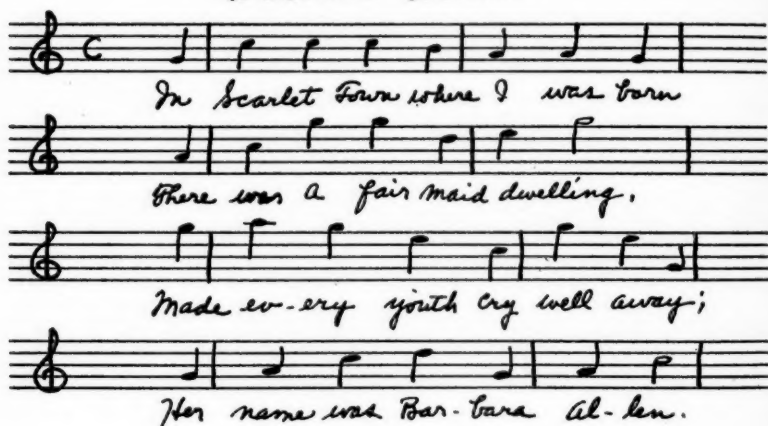 In Scarlet Town where I was born
There was a fair maid dwelling,
Made ev-ery youth cry well away;
Her name was Bar-bara Al-len.